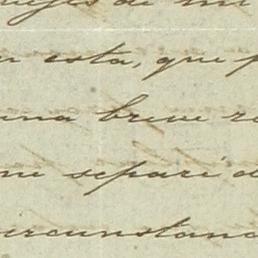 de mi
esta, que
una breve
me separé d
ircunstanc